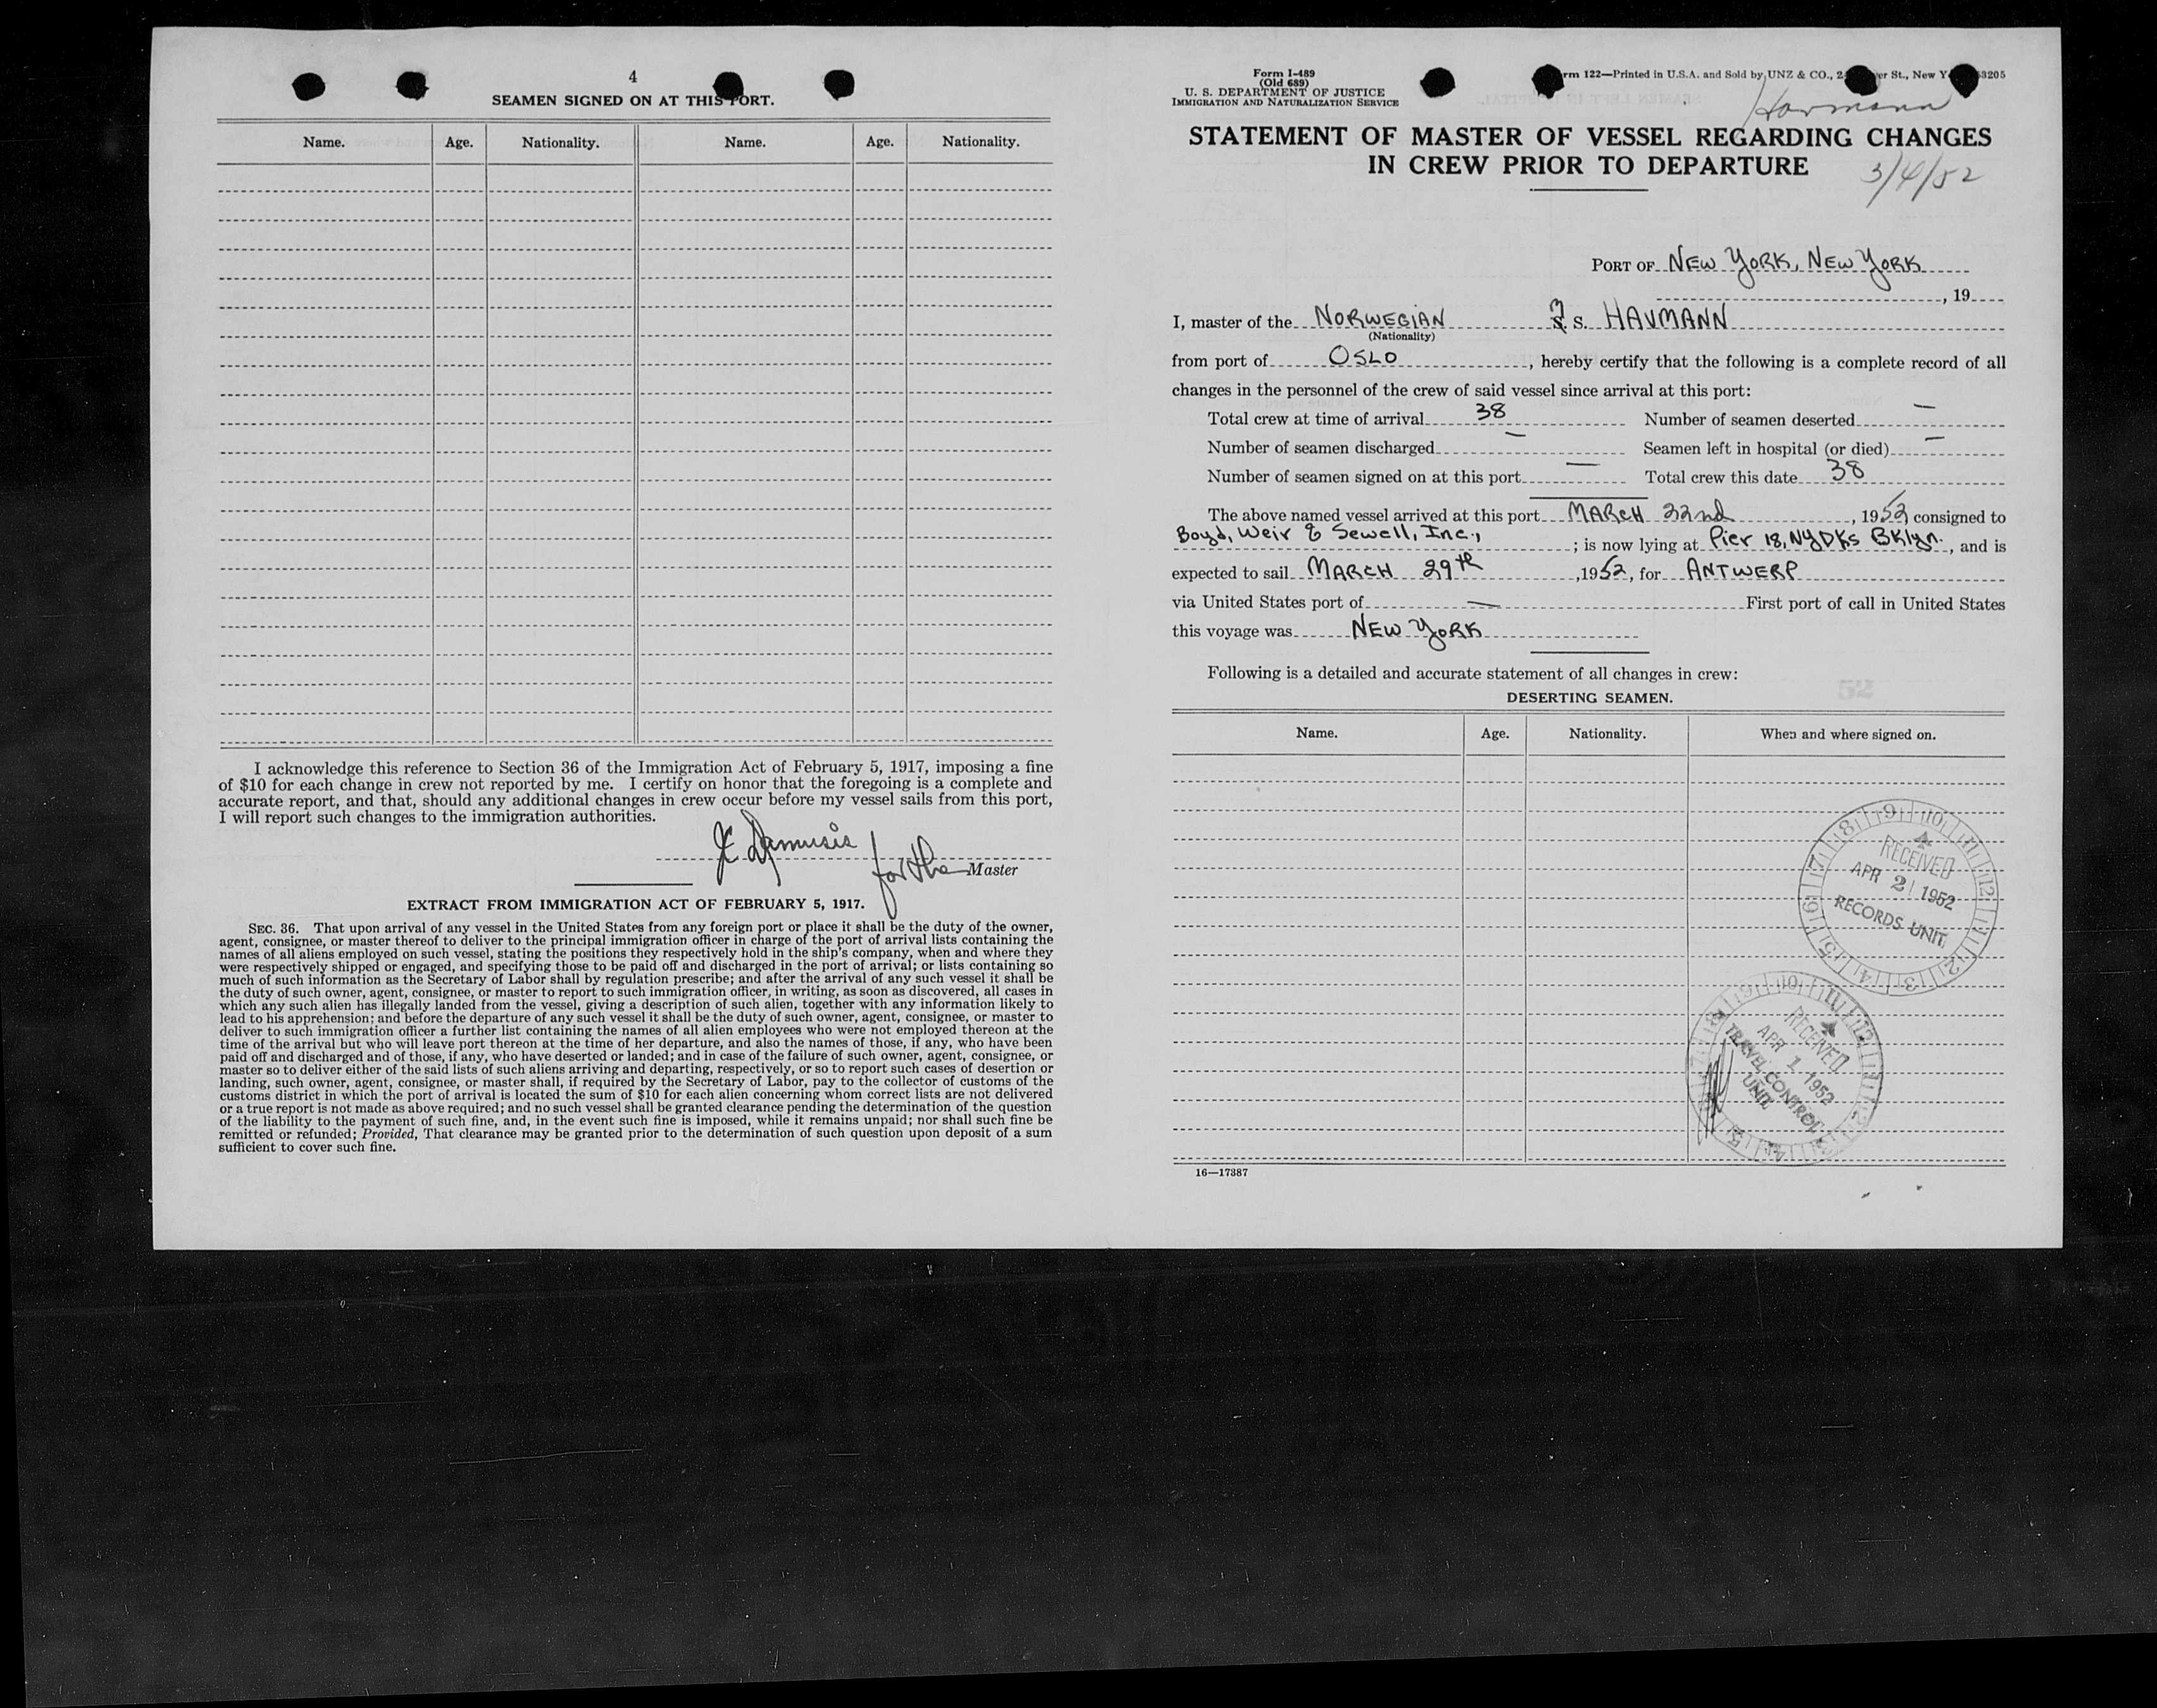 4
SEAMEN SIGNED ON AT THIS PORT.
Name. Age. Nationality. Name. Age. Nationality.
I acknowledge this reference to Section 36 of the Immigration Act of February 5, 1917, imposing a fine
of $10 for each change in crew not reported by me. I certify on honor that the foregoing is a complete and
accurate report, and that, should any additional changes in crew occur before my vessel sails from this port,
I will report such changes to the immigration authorities.
for the Master
EXTRACT FROM IMMIGRATION ACT OF FEBRUARY 5, 1917.
SEC. 36. That upon arrival of any vessel in the United States from any foreign port or place it shall be the duty of the owner,
agent, consignee, or master thereof to deliver to the principal immigration officer in charge of the port of arrival lists containing the
names of all aliens employed on such vessel, stating the positions they respectively hold in the ship's company, when and where they
were respectively shipped or engaged, and specifying those to be paid off and discharged in the port of arrival; or lists containing so
much of such information as the Secretary of Labor shall by regulation prescribe; and after the arrival of any such vessel it shall be
the duty of such owner, agent, consignee, or master to report to such immigration officer, in writing, as soon as discovered, all cases in
which any such alien has illegally landed from the vessel, giving a description of such alien, together with any information likely to
lead to his apprehension; and before the departure of any such vessel it shall be the duty of such owner, agent, consignee, or master to
deliver to such immigration officer a further list containing the names of all alien employees who were not employed thereon at the
time of the arrival but who will leave port thereon at the time of her departure, and also the names of those, if any, who have been
paid off and discharged and of those, if any, who have deserted or landed; and in case of the failure of such owner, agent, consignee, or
master so to deliver either of the said lists of such aliens arriving and departing, respectively, or so to report such cases of desertion or
landing, such owner, agent, consignee, or master shall, if required by the Secretary of Labor, pay to the collector of customs of the
customs district in which the port of arrival is located the sum of $10 for each alien concerning whom correct lists are not delivered
or a true report is not made as above required; and no such vessel shall be granted clearance pending the determination of the question
of the liability to the payment of such fine, and, in the event such fine is imposed, while it remains unpaid; nor shall such fine be
remitted or refunded; Provided, That clearance may be granted prior to the determination of such question upon deposit of a sum
sufficient to cover such fine.
Form I-489
(Old 689)
U. S. DEPARTMENT OF JUSTICE
IMMIGRATION AND NATURALIZATION SERVICE
122—Printed in U.S.A. and Sold by UNZ & CO., St., New
Havmann
STATEMENT OF MASTER OF VESSEL REGARDING CHANGES
IN CREW PRIOR TO DEPARTURE
3/4/52
PORT OF NEW YORK, NEW YORK
, 19
I, master of the NORWEGIAN S. HAVMANN
(Nationality)
from port of OSLO, hereby certify that the following is a complete record of all
changes in the personnel of the crew of said vessel since arrival at this port:
Total crew at time of arrival 38 Number of seamen deserted —
Number of seamen discharged — Seamen left in hospital (or died) —
Number of seamen signed on at this port — Total crew this date 38
The above named vessel arrived at this port MARCH 22nd, 1952, consigned to
Boyd, Weir & Sewell, Inc., ; is now lying at Pier 18, NYDKs BKlyn., and is
expected to sail MARCH 29th, 1952, for ANTWERP
via United States port of — First port of call in United States
this voyage was NEW YORK
Following is a detailed and accurate statement of all changes in crew:
DESERTING SEAMEN.
Name. Age. Nationality. When and where signed on.
RECEIVED
APR 2 1952
RECORDS UNIT
RECEIVED
APR 1 1952
TRAVEL CONTROL
UNIT
16—17387